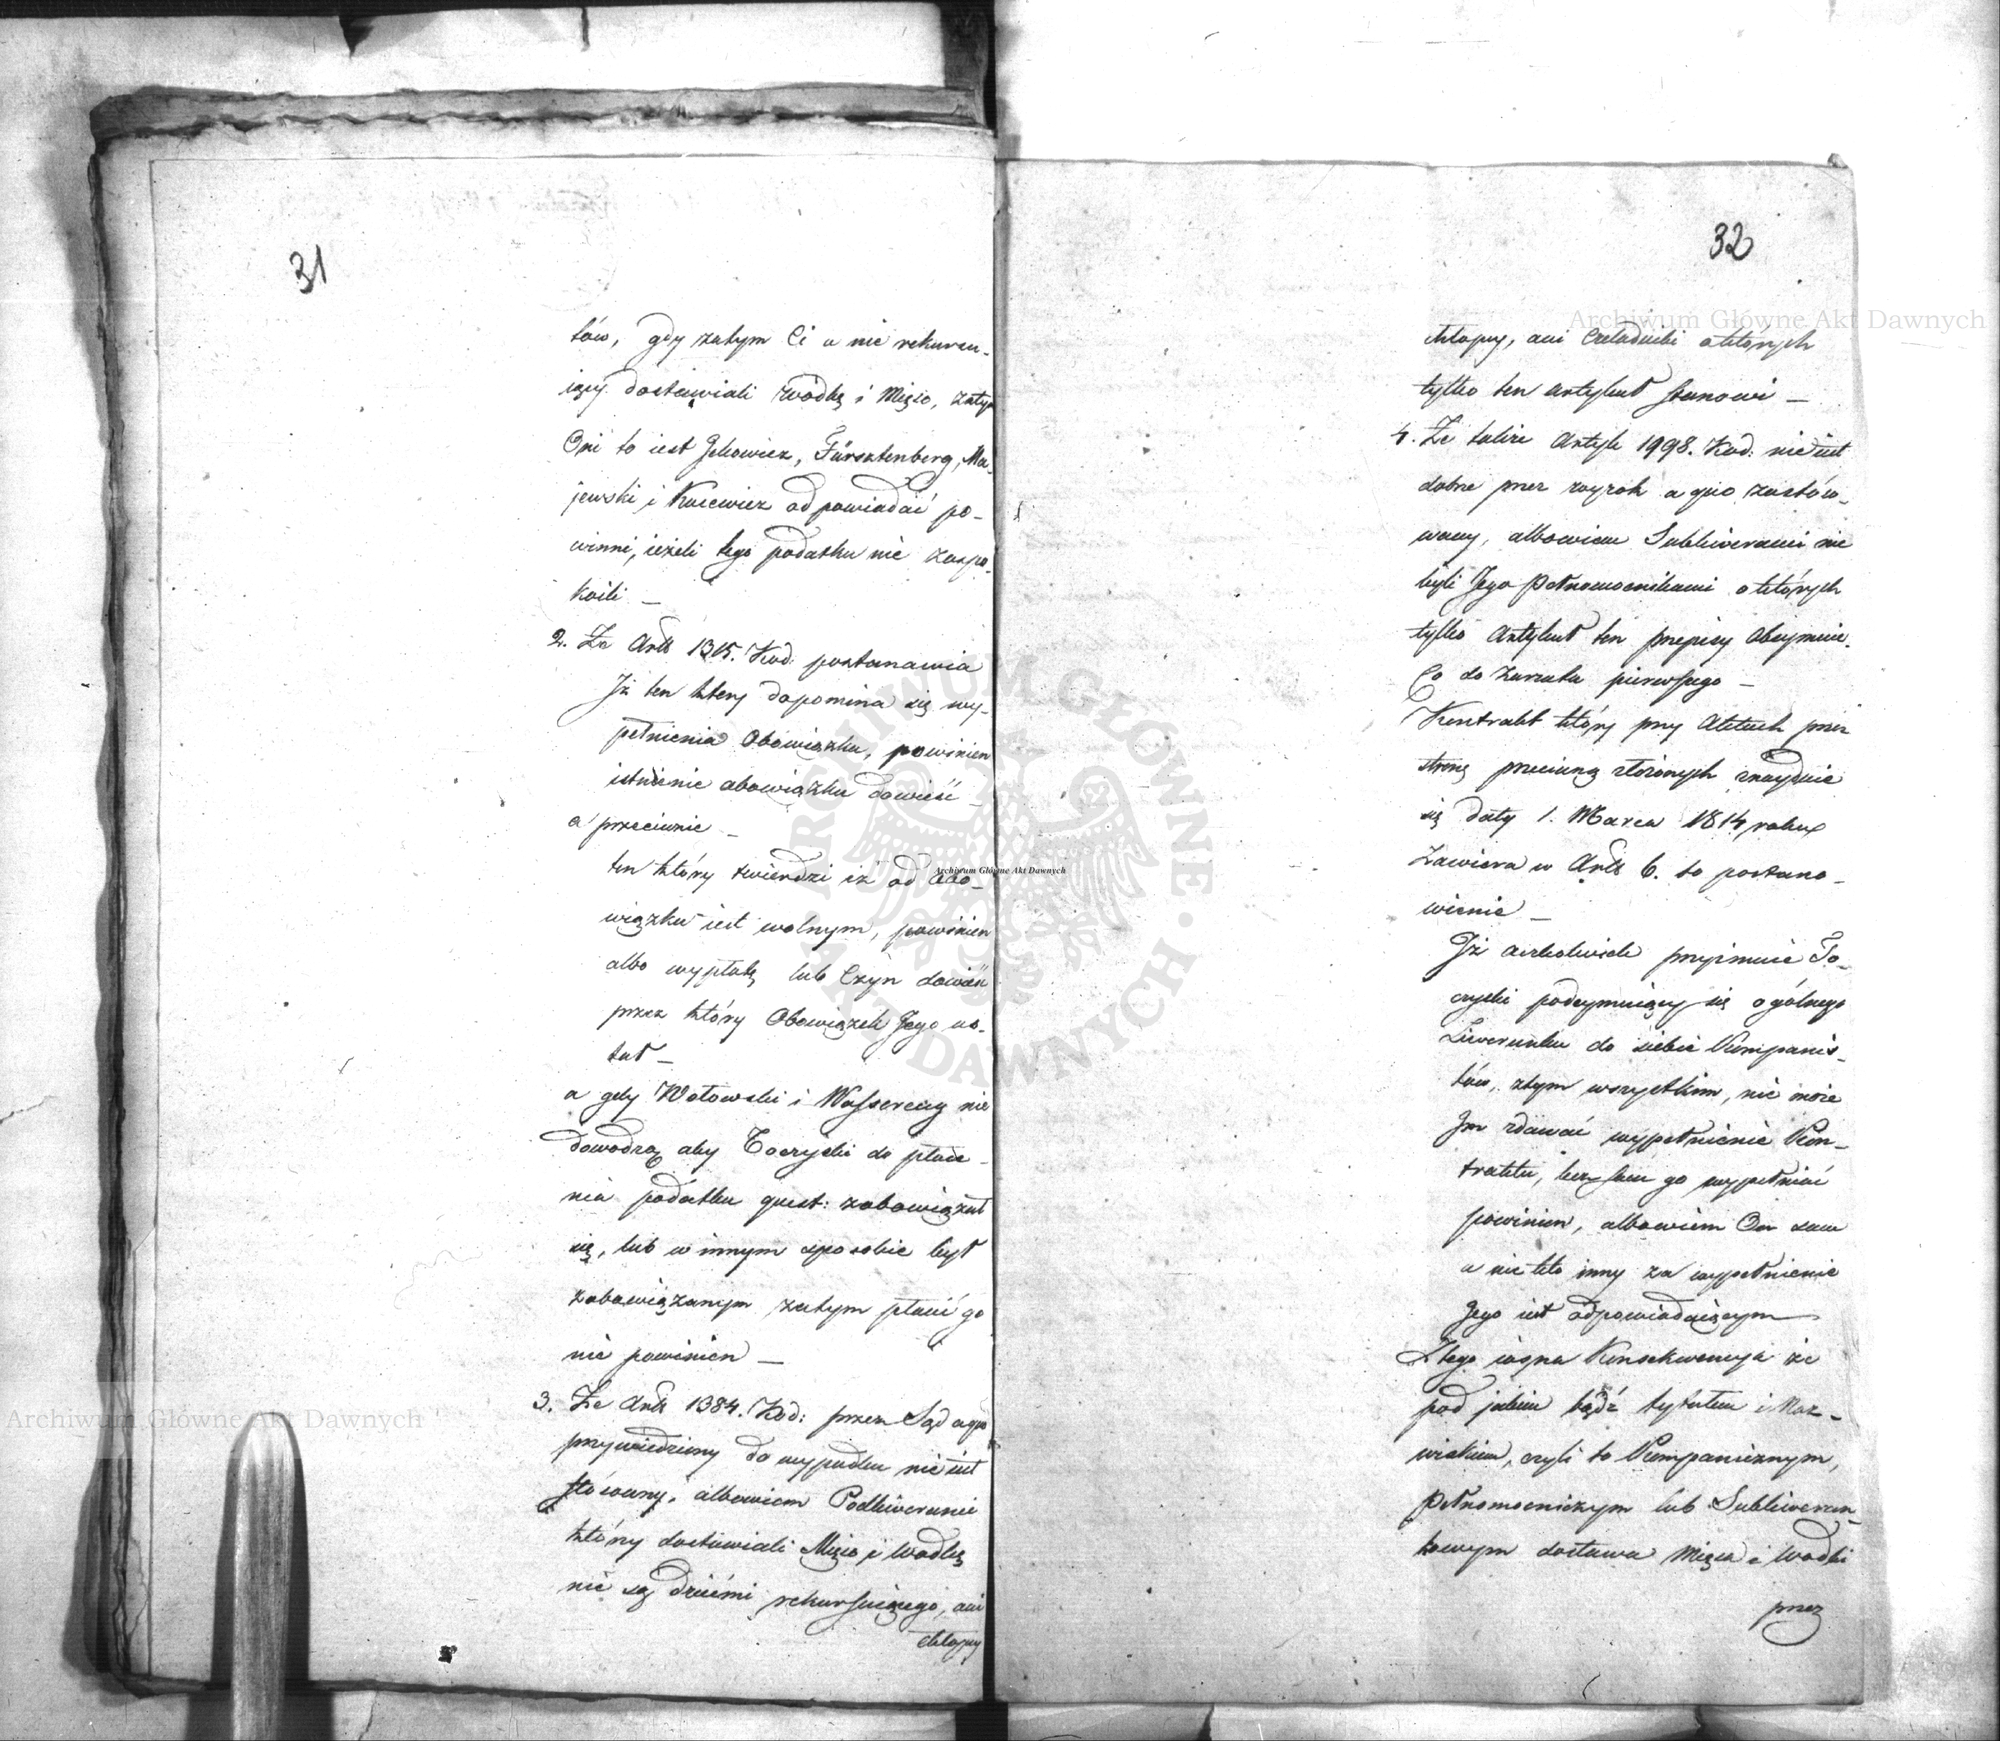 31
tów, gdy zatym Ci a nie rekuru-
iący dostawiali wodkę i Mięso, zatym
Oni to iest Jckowicz, Fürsztenberg, Ma-
jewski i Kucewicz odpowiadać po-
winni, ieżeli tego podatku nie zaspo-
koili —
2. Ze Artł 1315. Kod: postanawia
Iż ten ktery dopomina się wy-
pełnienia Obowiązku, powinien
istnienie obowiązku dowieść —
a przeciwnie —
ten który twierdzi iż od Obo-
wiązku iest wolnym, powinien
albo wypłatę lub Czyn dowieść
przez który Obowiązek Jego us-
tał —
a gdy Wotowski i Wassercug nie
dowodzą aby Toczyski do płace-
nia podatku quest: zobowiązał
się, lub w innym sposobie był
zobowiązanym zatym płacić go
nie powinien —
3. Ze Artł 1384. Kod: przez Sąd a quo
przywiedziony do wypadku nie iest
stósowny, albowiem Podliweranci
który dostawiali Mięso i Wodkę
nie są dziećmi rekursuiącego, ani
chłopy
32
chłopy, ani Czeladniki o których
tylko ten artykuł stanowi —
4. Ze także Artyk 1998. Kod: nie iest
dobrze przez wyrok a quo zastóso-
wany, albowiem Subliweranci nie
byli Jego Pełnomocnikami o których
tylko Artykuł ten przepisy Obeymuie.
Co do Zarzutu pierwszego —
Kontrakt który przy Aktach przez
stronę przeciwną złożonych znayduie
się daty 1. Marca 1814 roku
Zawiera w Artł 6. to postano-
wienie —
Iż aczkolwiek przyimuie To-
czyski podeymuiący się ogólnego
Liwerunku do siebie Kompanis-
tów, ztym wszystkim, nie może
Im zdawać wypełnienie Kon-
traktu, lecz sam go wypełniać
powinien, albowiem On sam
a nie kto inny za wypełnienie
Jego iest odpowiadaiącym
Ztego iasna Konsekwencya że
pod jakim bądź tytułem i Naz-
wiskiem, czyli to Kompanicznym,
Pełnomocniczym lub Subliweran-
towym dostawa Mięsa i Wodki
przez
Archiwum Główne Akt Dawnych
Archiwum Główne Akt Dawnych
Archiwum Główne Akt Dawnych
ARCHIWUM GŁÓWNE • AKT DAWNYCH •